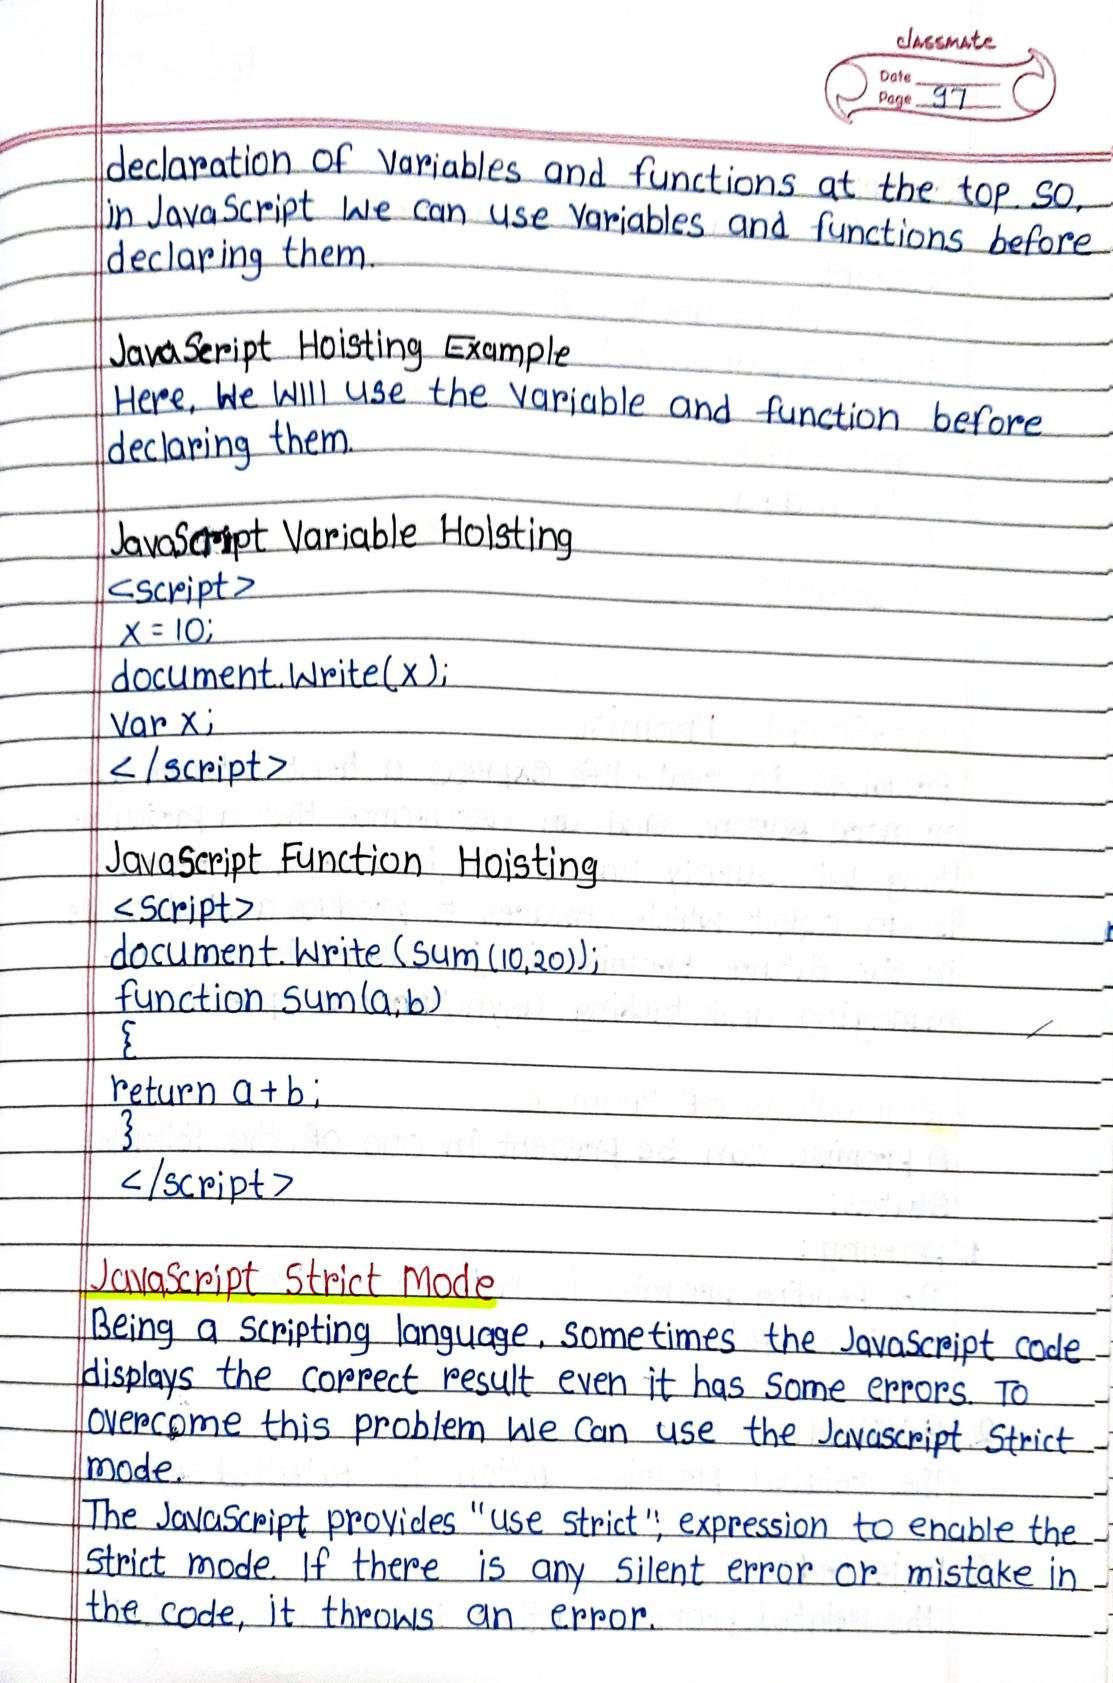 classmate
Date
Page 97
declaration of variables and functions at the top. So,
in JavaScript we can use variables and functions before
declaring them.
JavaScript Hoisting Example
Here, we will use the variable and function before
declaring them.
JavaScript Variable Hoisting
<script>
x = 10;
document.write(x);
var x;
</script>
JavaScript Function Hoisting
<script>
document.write (sum (10,20));
function sum(a,b)
{
return a+b;
}
</script>
JavaScript Strict Mode
Being a scripting language, sometimes the JavaScript code
displays the correct result even it has some errors. To
overcome this problem we can use the Javascript Strict
mode.
The JavaScript provides "use strict"; expression to enable the
strict mode. If there is any silent error or mistake in
the code, it throws an error.